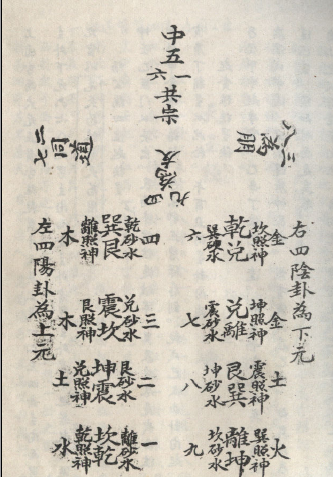 中五
一六共宗
三八為朋
二七同道
四九為友
右四陰卦為下元
金 坎照神 乾兌 巽砂水 六
金 坤照神 兌離 震砂水 七
土 震照神 艮巽 坤砂水 八
火 巽照神 離坤 坎砂水 九
四 乾砂水 巽艮 離照神 木
三 兌砂水 震坎 艮照神 木
二 艮砂水 坤震 兌照神 土
一 離砂水 坎乾 乾照神 水
左四陽卦為上元